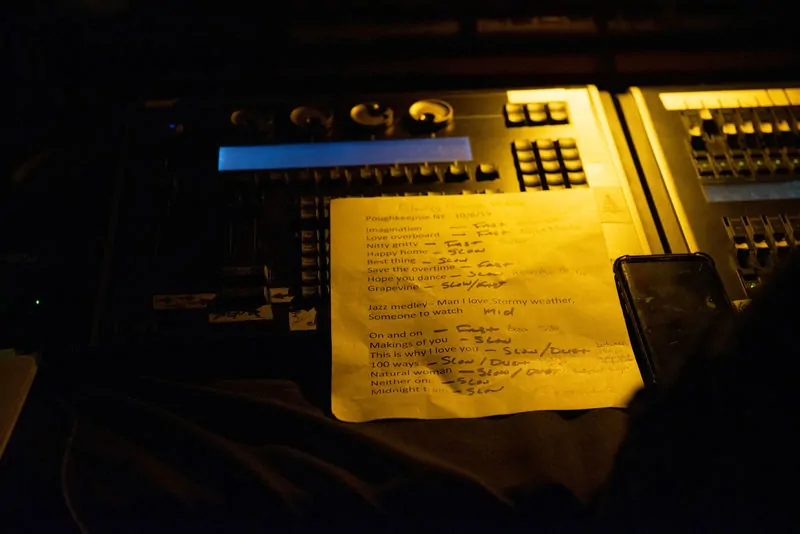 Poughkeepsie NY 10/6/19
Imagination — Fast
Love overboard — Fast
Nitty gritty — Fast
Happy home — Slow
Best thing — Slow
Save the overtime — Fast
Hope you dance — Slow
Grapevine — Slow/Fast
Jazz medley - Man I love Stormy weather,
Someone to watch Mid
On and on — Fast
Makings of you — Slow
This is why I love you — Slow/Duet
100 ways — Slow/Duet
Natural woman — Slow/Duet
Neither one — Slow
Midnight — Slow